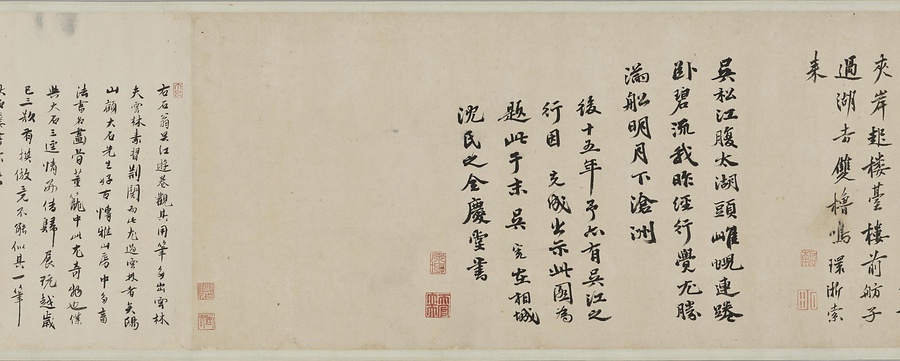 夾岸起楼臺楼前舫子
過湖去雙櫓鳴深浙索
来
吳松江腹太湖頭雌蜺連蜷
卧碧流我昨經行覺尤勝
滿船明月下滄洲
後十五年予亦有吳江之
行因克成出示此圖為
題此于末吳寛在相城
沈氏之全慶堂書
右石翁吳江遊卷觀其用筆多出雲林
夫雲林素習荆關而此尤過雲林者矣陽
山顧大石先生好古博雅山房中多畜
法書名畫皆董籠中此尤奇物也僕
與大石三逕情借歸展玩越歲
已三欲有摸倣竟不能似其一筆